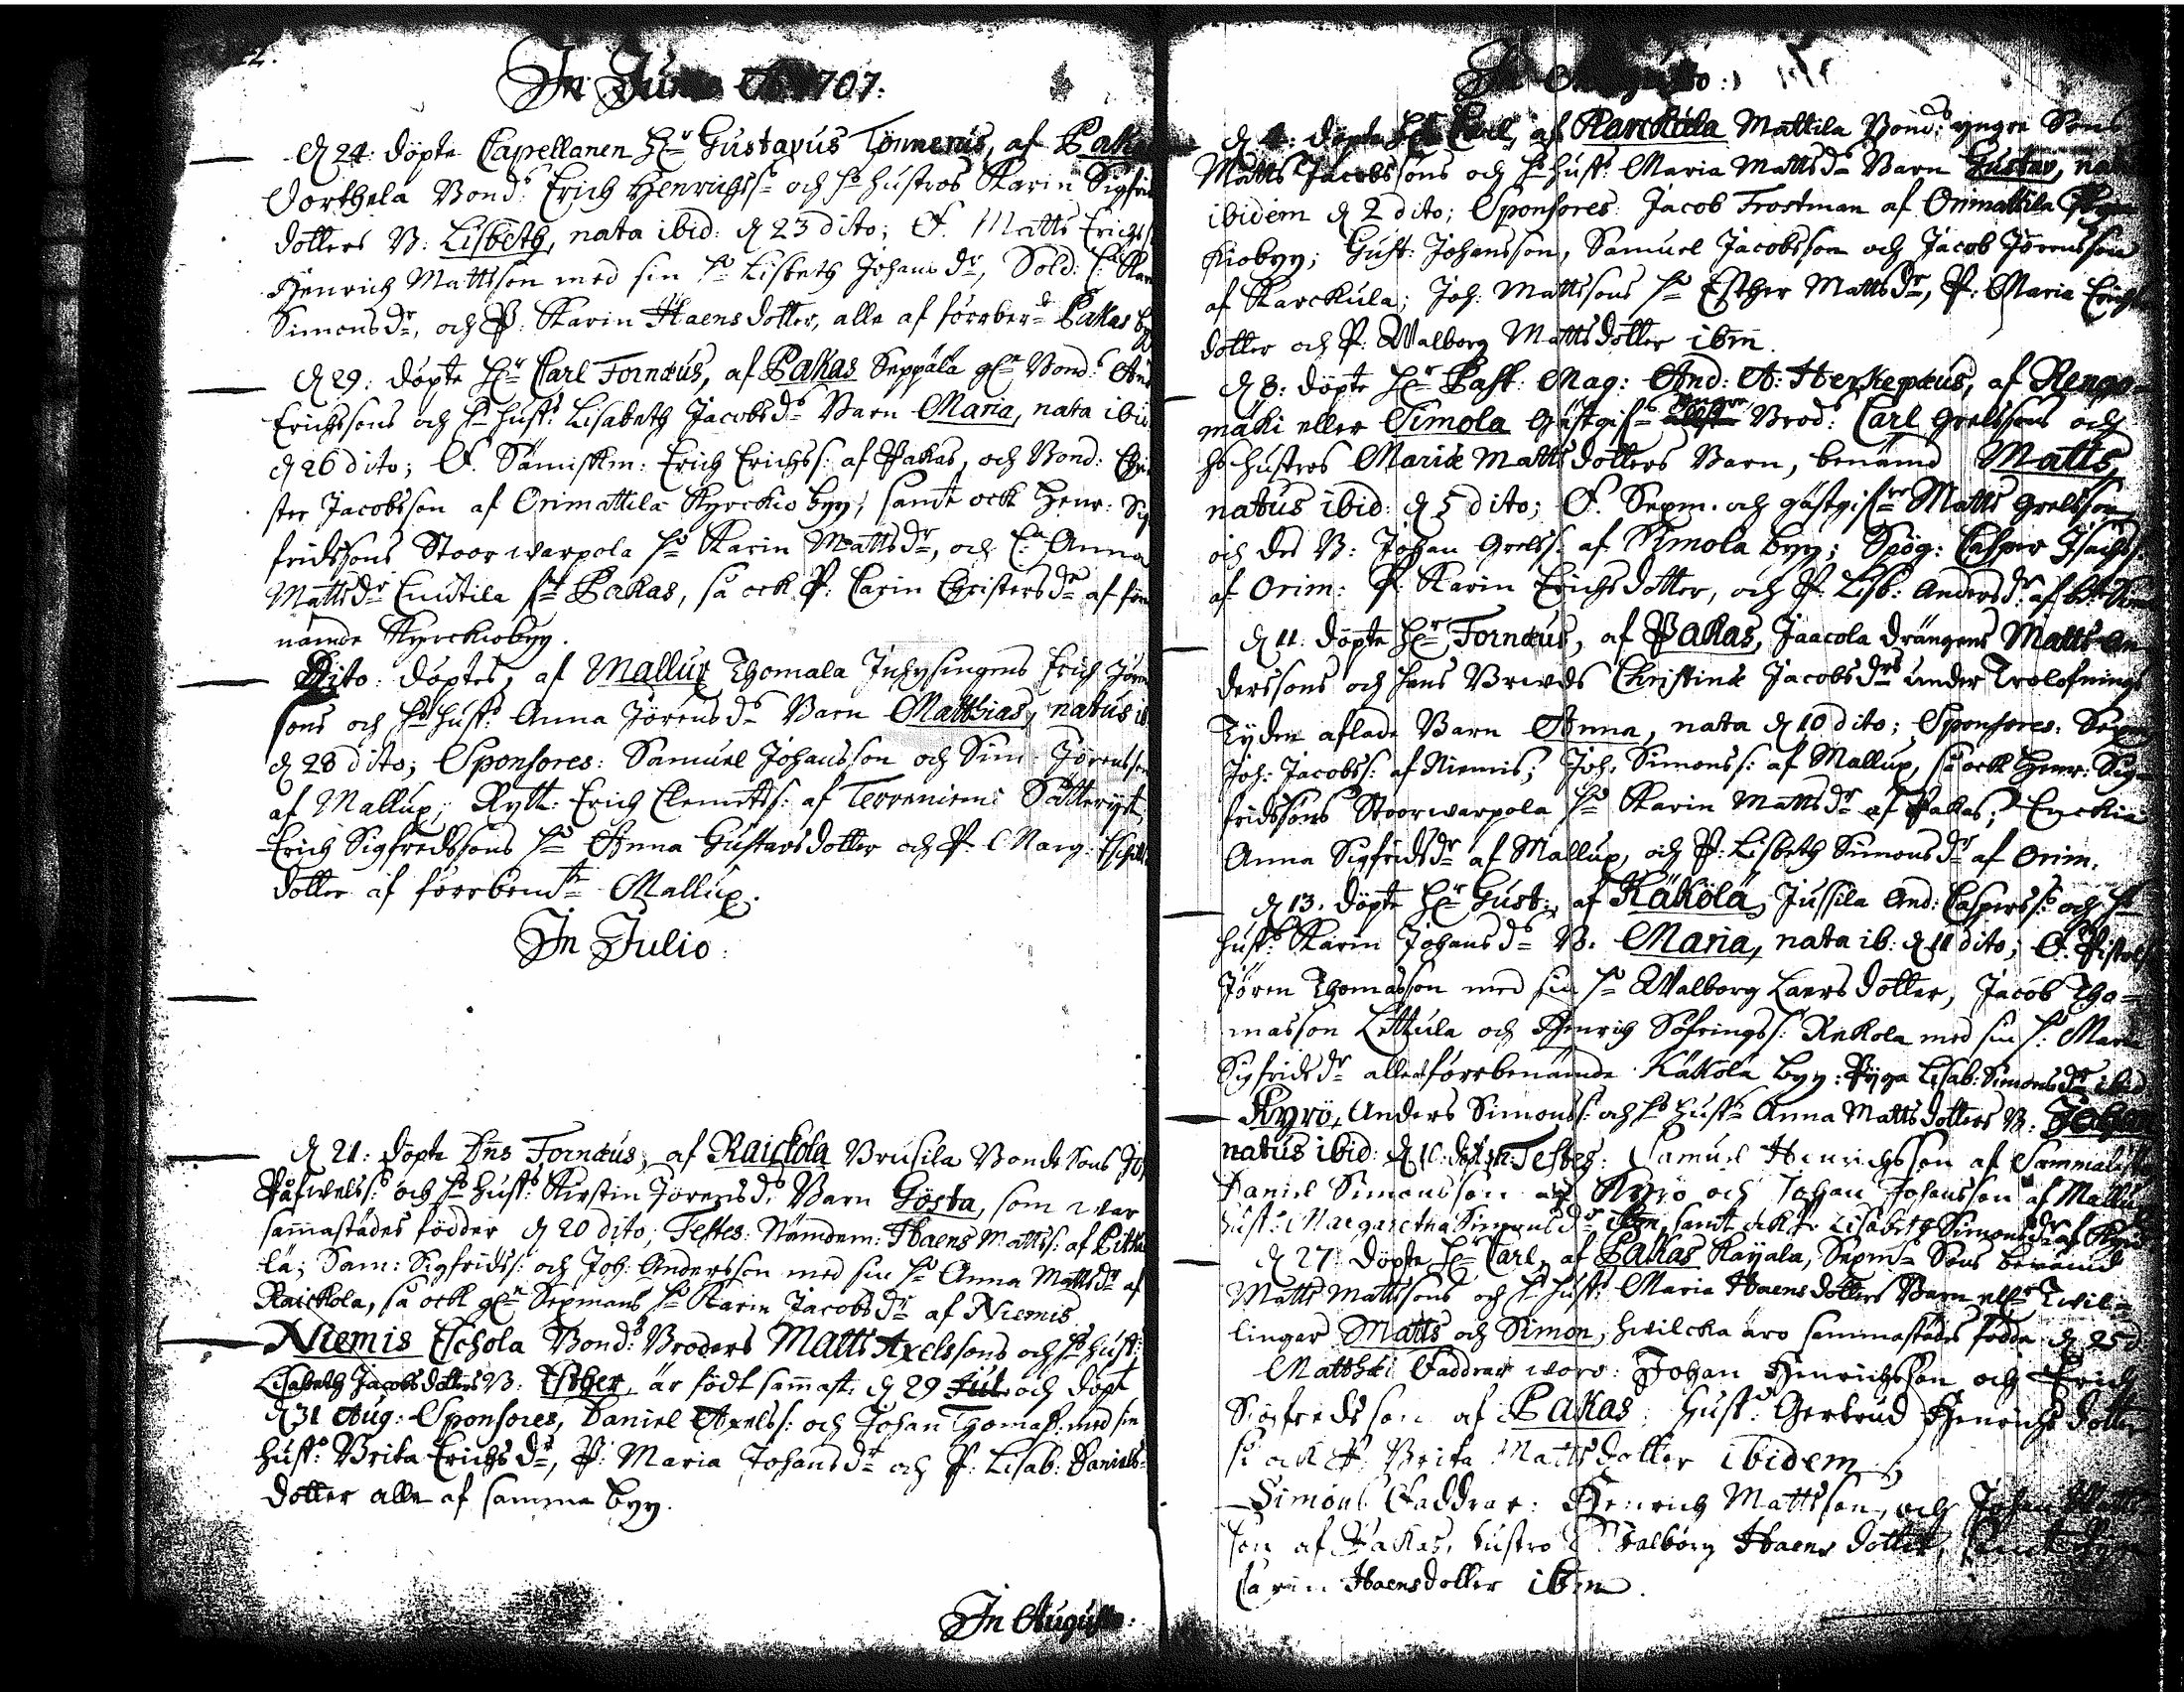 2.
In Junio A 1707:
d 24: döpte Capellanen Hr Gustavus Tönnerus, af Pakas
Vorthela Bond: Erich Henrichss: och hs hustros Karin Sigfrids
dotters B: Lisbeth, nata ibid: d 23 dito; F. Matts Erichss
Henrich Mattsson med sin H: Lisbeth Johans dr, Sold: h: Karin
Simonsdr, och P: Karin Haensdotter, alla af förrber: Pakas by
d 29: döpte Hr Carl Fornæus, af Pakas Seppälä Bond:
Erichssons och hs hust: Lisabeth Jacobsd: Barn Maria, nata ibid
d 26 dito; F. Erich Erichss: af Pakas, och Bond: Chri
ster Jacobsson af Orimattila Kyrckio byy, samt ock Henr: Sig
fridssons Stoorwarpola H: Karin Mattsdr, och E: Anna
Mattsdr Pakas, så ock P: Carin Christersdr af för
nämde Kyrckiobyy.
Dito: döptes, af Mallup Thomala Inhysingens Erich Jörens
sons och hs hust: Anna Jörensd: Barn Matthias, natus ib
d 28 dito; Sponsores: Samuel Johansson och Sim: Jörensson
af Mallup; Rytt: Erich Clemetss: af Terreniemi
Erich Sigfredssons H: Anna Gustavsdotter och P: Marg:
dotter af förrbemte Mallup.
In Julio:
d 21: döpte Dns Fornæus, af Raickola Brusila Bonde Sons
Påfwelss: och hs hust: Kirstin Jörensd: Barn Gösta, som war
sammastädes födder d 20 dito; Testes: Nämdem: Haens Mattss: af
lä; Sam: Sigfridss: och Joh: Andersson med sin H: Anna Mattsdr af
Raickola, så ock Sexmans H: Karin Jacobsdr af Niemis
Niemis Eschola Bond: Broders Matts Axelssons och hs hust:
Lisabeth Jacobsdotters B: Esther är född sammast: d 29 Jul: och döpt
d 31 Aug: Sponsores, Daniel Axelss: och Johan Thomass: med sin
hust: Brita Erichsdr, P: Maria Johansdr och P: Lisab: Daniels
dotter alla af samma byy.
In Augusto:
In Augusto:
d 4: döpte Hr Carl, af Karckula Mattila Bond: yngre Sons
Matts Jacobssons och hs hust: Maria Mattsd: Barn Gustav, natus
ibidem d 2 dito; Sponsores: Jacob Frostman af Orimattila
kiobyy; Gust: Johansson, Samuel Jacobsson och Jacob Jörensson
af Karckula; Joh: Mattssons H: Esther Mattsdr, P: Maria Erichs
dotter och P: Walborg Mattsdotter ibm.
d 8: döpte Hr Past: Mag: And: A: Herkepæus, af Rengo
mäki eller Simola Gästgif: yngre Brod: Carl Grelssons och
hs hustros Mariæ Mattsdotters Barn, benämd Matts,
natus ibid: d 5 dito; F. Sexm. och gästgifr Matts Grelsson,
och des B: Johan Grelss: af Simola byy; Casper Isachss:
af Orim: P: Karin Erichsdotter, och P: Lisb: Andersdr: af
d 11: döpte Hr Fornæus, af Pakas, Jaacola drängens Matts An
derssons och hans Bruds Christinæ Jacobsdrs under Trolofnings
Tyden aflade Barn Anna, nata d 10 dito; Sponsores: Sexm
Joh: Jacobss: af Niemis; Joh: Simonss: af Mallup, så ock Henr: Sig
fridssons Stoorwarpola H: Karin Mattsdr af Pakas; Enckia
Anna Sigfridsdr af Mallup, och P: Lisbeth Simonsdr af Orim.
d 13. döpte Hr Gust:, af Käkölä, Jussila And: Caspers s: och hs
hust: Karin Johansd: B: Maria, nata ib: d 11 dito; F.
Jören Thomasson med sin H: Walborg Laersdotter, Jacob Tho
masson Littula och Henrich Söfringss: Rekola med sin H: Maria
Sigfridsdr alla af förrbenämde Käkölä byy: Pyga Lisab: Simonsdr ibid
Kyrö, Anders Simonss: och hs hust: Anna Mattsdotters B: Johan
natus ibid: Testes: Samuel Henrichsson af Sammalisto
Daniel Simonsson af Kyrö och Johan Johansson af Mallup
hust: Margaretha Simonsdr ibm, samt ock P: Lisabeth Simonsdr af Kyrö
d 27: döpte Hr Carl, af Pakas Kayala, Sexm: Sons benämd
Matts Mattssons och hs hust: Maria Haensdotters Barn ell: Twil
lingar Matts och Simon, hwilcka äro sammastädes födda d 25 d
Matthæi Faddrar woro: Johan Henrichsson och Erich
Sigfredsson af Pakas; hust: Gertrud Henrichsdotter
så ock P: Brita Mattsdotter ibidem;
Simons Faddrar: Henrich Mattsson, och Johan Matts
son af Pakas, hustro Walborg Haensdotter, samt
Carin Haensdotter ibm.